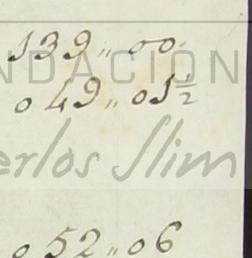 139 ,, 00.
NDACIÓN
0 49 ,, 01 1/2
erlos Slim
0 52 ,, 06